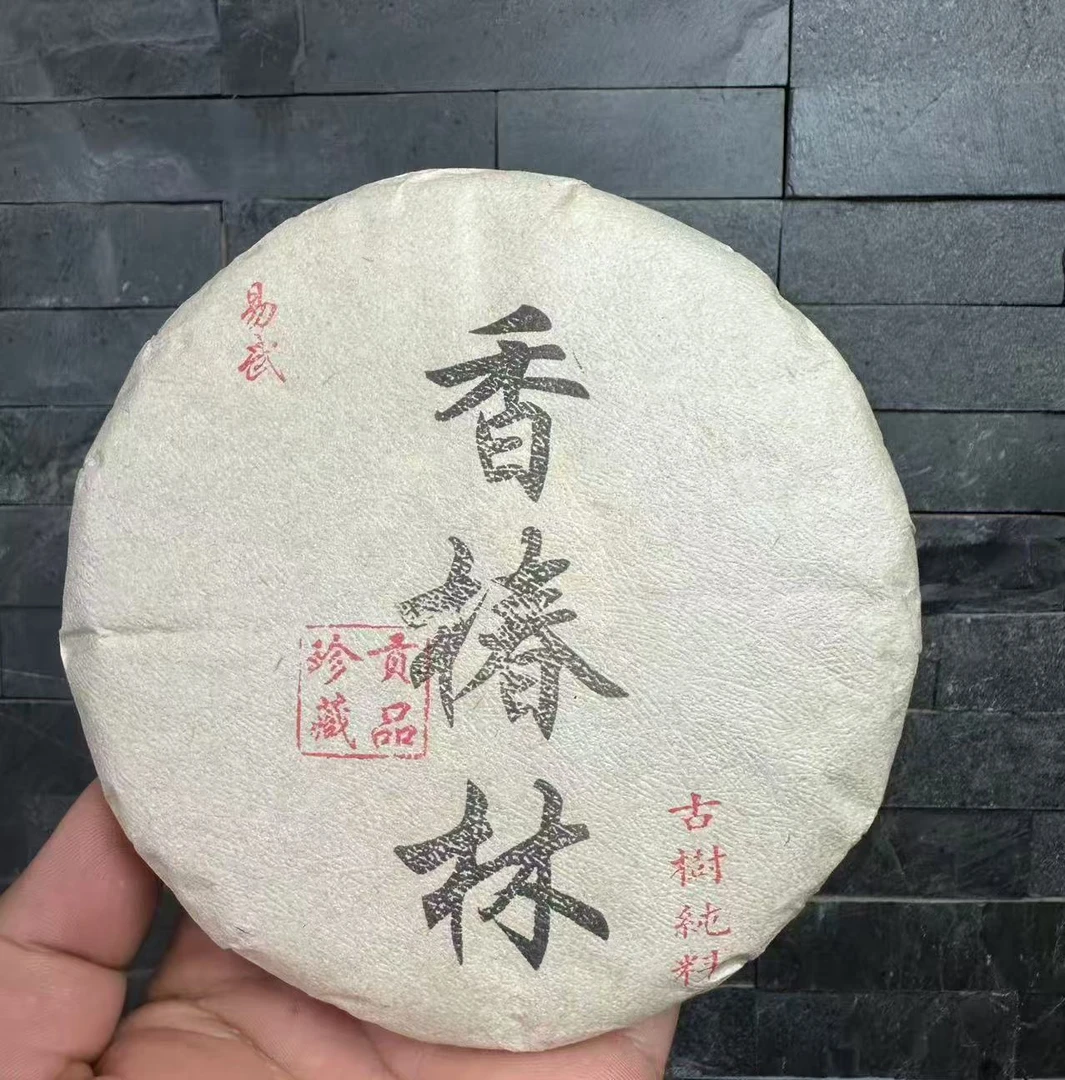 易武
香椿林
貢品
珍藏
古樹純料